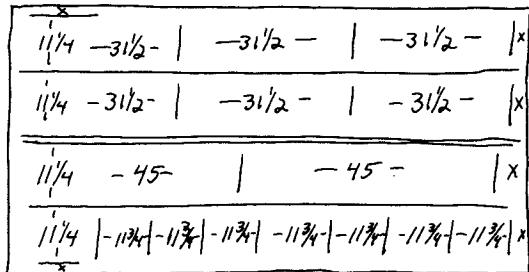 x
11 1/4 -31 1/2- | -31 1/2- | -31 1/2- | x
11 1/4 -31 1/2- | -31 1/2- | -31 1/2- | x
11 1/4 -45- | -45- | x
11 1/4 |-11 3/4-|-11 3/4-|-11 3/4-|-11 3/4-|-11 3/4-|-11 3/4-|-11 3/4-| x
x